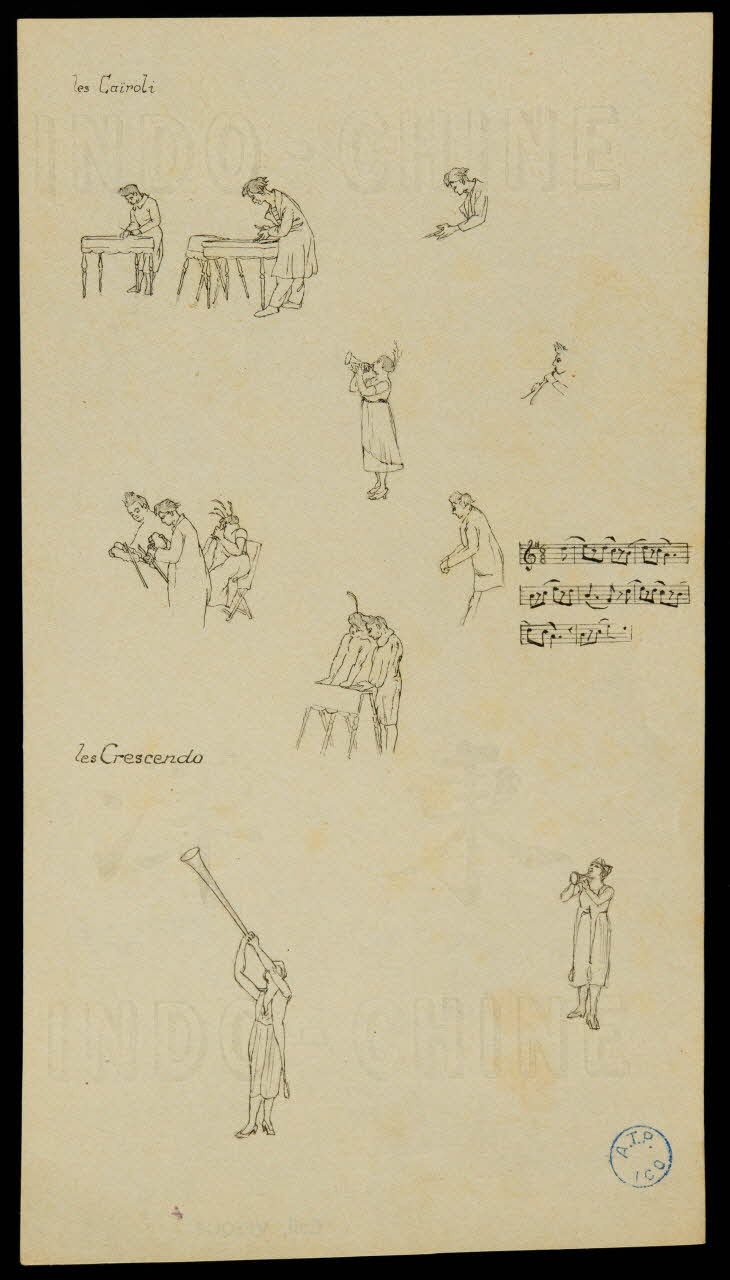 les Caïroli
INDO-CHINE
les Crescendo
INDO-CHINE
A.T.P.
ICO